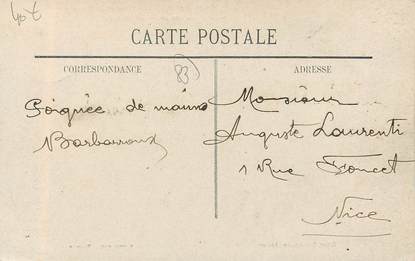 40€
CARTE POSTALE
CORRESPONDANCE
ADRESSE
83
Poignée de mains
Barbarroux
Monsieur
Auguste Laurenti
1 Rue Foncet
Nice